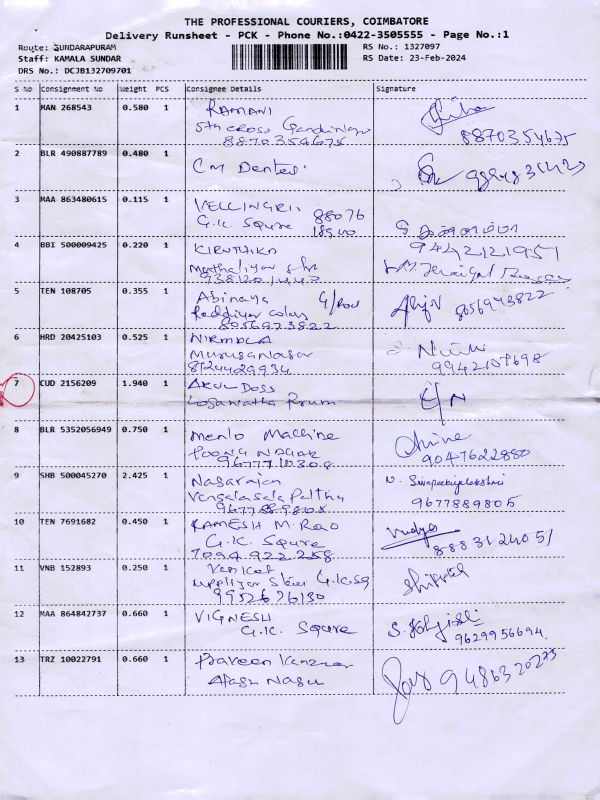 THE PROFESSIONAL COURIERS, COIMBATORE
Delivery Runsheet - PCK - Phone No.:0422-3505555 - Page No.:1
Route: SUNDARAPURAM
RS No.: 1327097
Staff: KAMALA SUNDAR
RS Date: 23-Feb-2024
DRS No.: DCJB132709701
S No Consignment No Weight PCS Consignee Details Signature
1 MAN 268543 0.580 1 RAMANI
5th cross Gandhinagar
8870354675 8870354675
2 BLR 490887789 0.480 1 CM Dentes
3 MAA 863480615 0.115 1 VELLINGRI 88076
G.K. Square
4 BBI 500009425 0.220 1 KIRUTHIKA 9442121951
5 TEN 108705 0.355 1 Abinaya
Reddiyar Colony 8056943822
8056973822
6 HRD 20425103 0.525 1 NIRMALA
Murugan Nagar
8124429934 9942107698
7 CUD 2156209 1.940 1 ARUL DOSS
Loganatha Puram
8 BLR 5352056949 0.750 1 Menlo Machine
POONGA NAGAR 9047622880
9677710308
9 SHB 500045270 2.425 1 Nagarajan
9677889805 9677889805
10 TEN 7691682 0.450 1 RAMESH M. Rao
G.K. Squre 8883124051
7094 922 258
11 VNB 152893 0.250 1 Venkat
9952676130
12 MAA 864842737 0.660 1 VIGNESH
G.K. Square 9629956694
13 TRZ 10022791 0.660 1 Praveen Kumar
9486320273